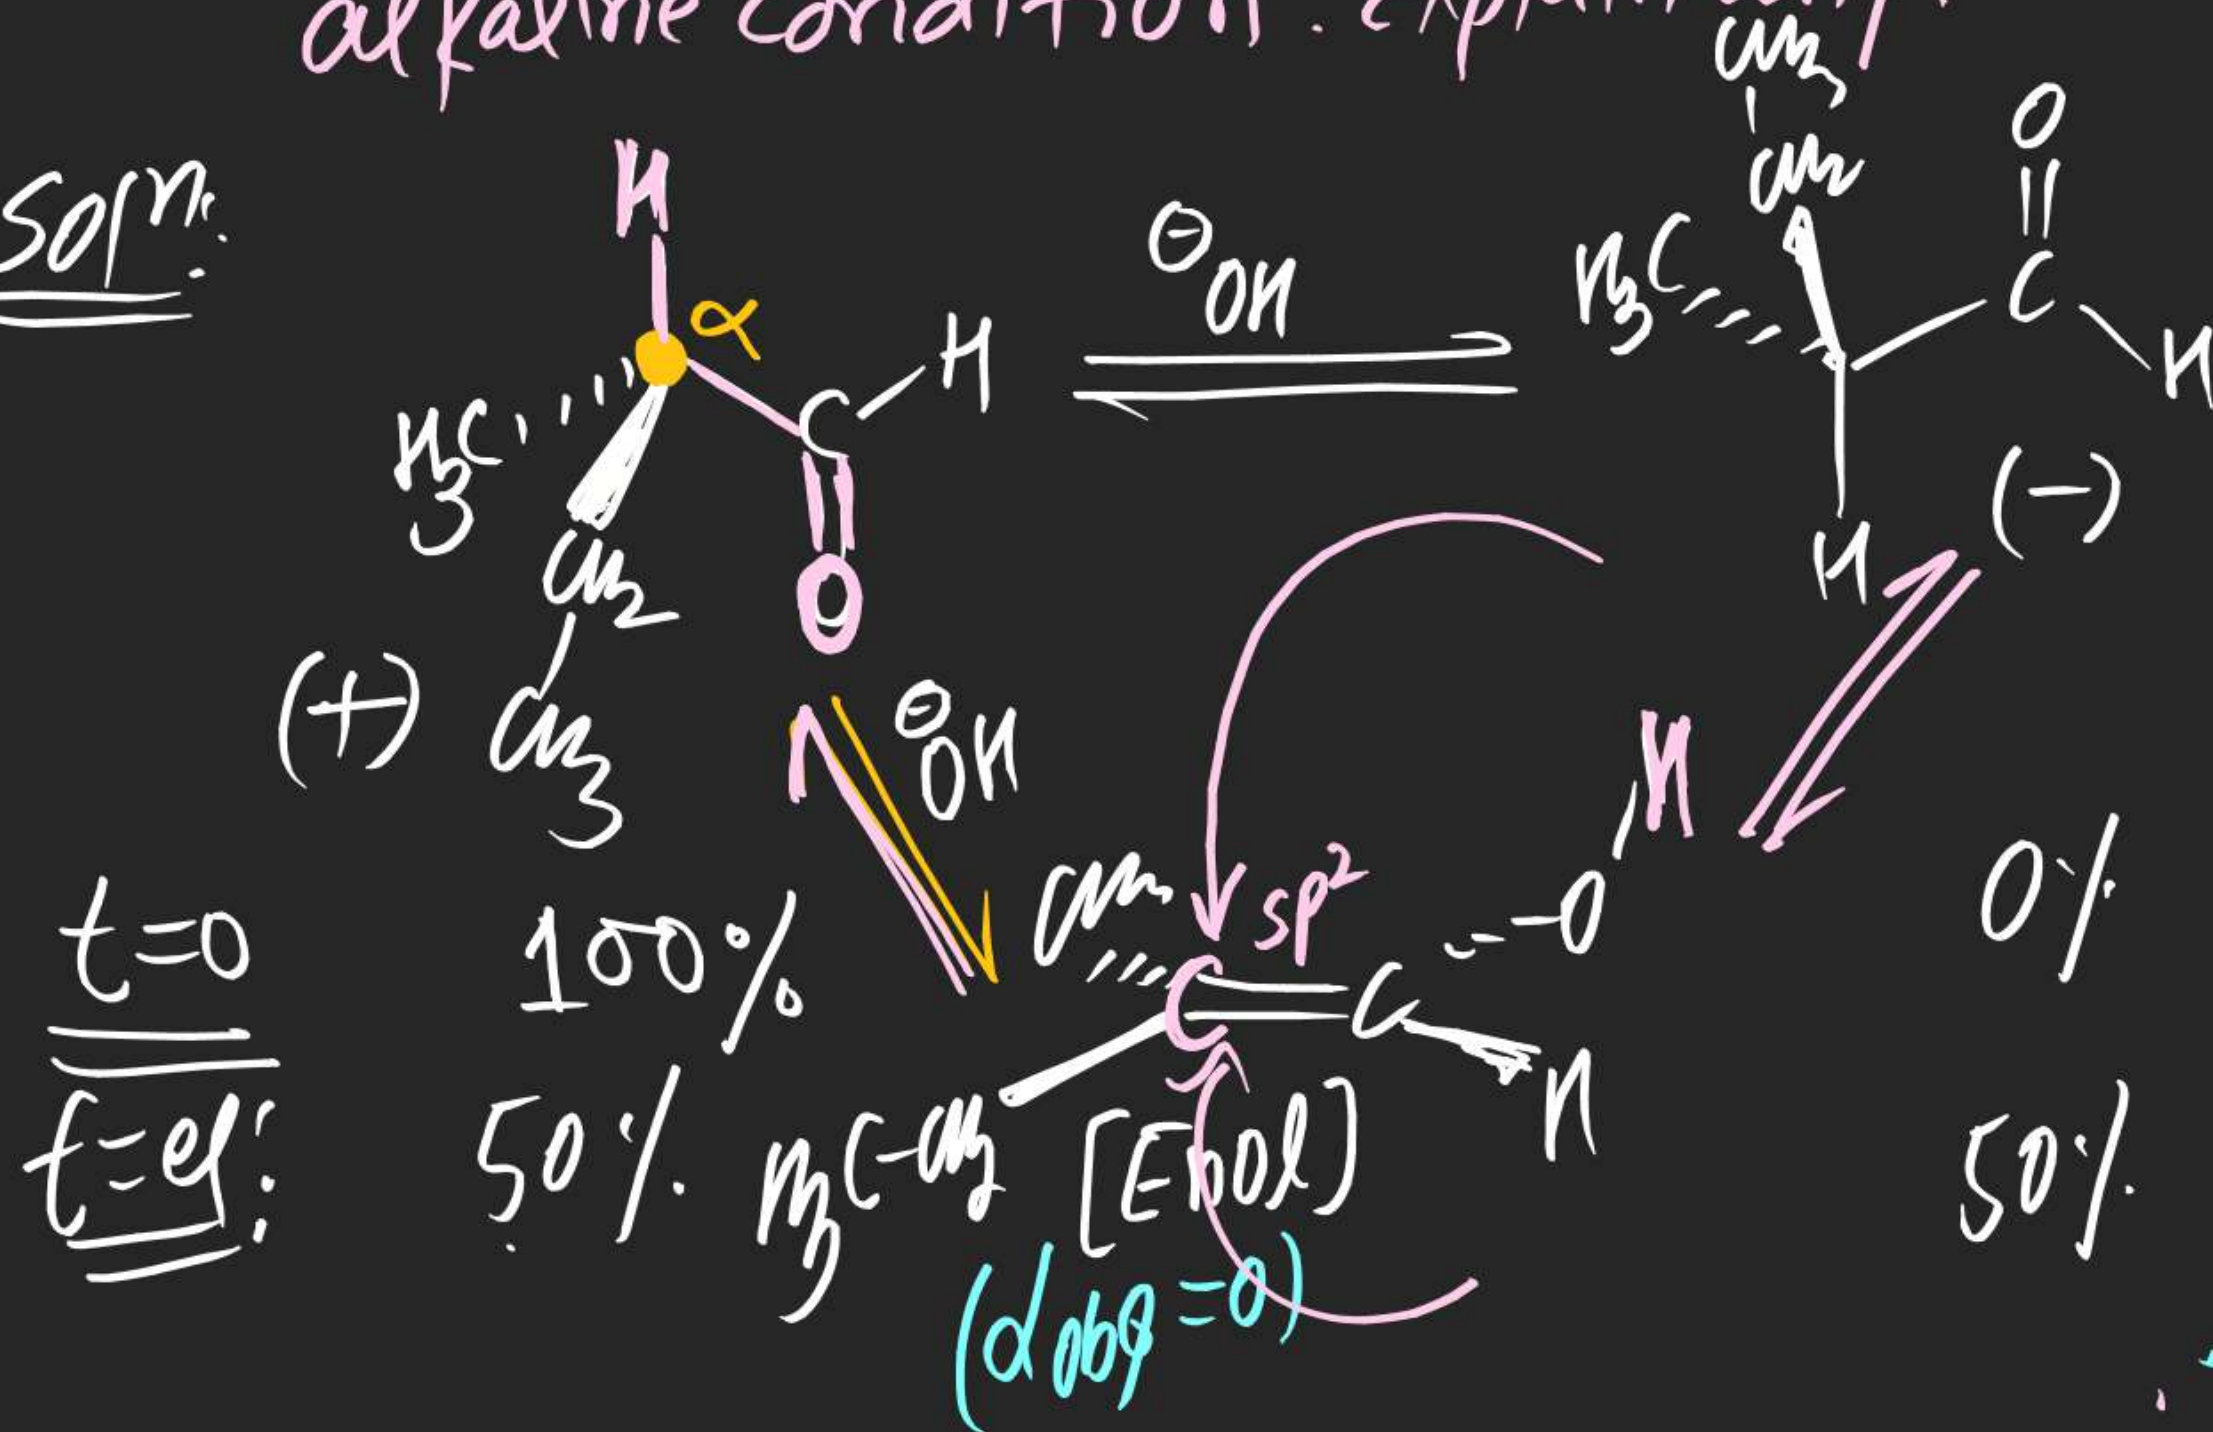 alkaline condition. explain
Soln:
H
α
H
H3C
C
O
CH2
CH3
(+)
⊖OH
CH3
CH2
H3C
O
C
H
H
(-)
⊖OH
CH3
sp²
H
O
C=C
H
H3C-CH2
[Enol]
t=0 100% 0%
t=eq: 50% 50%